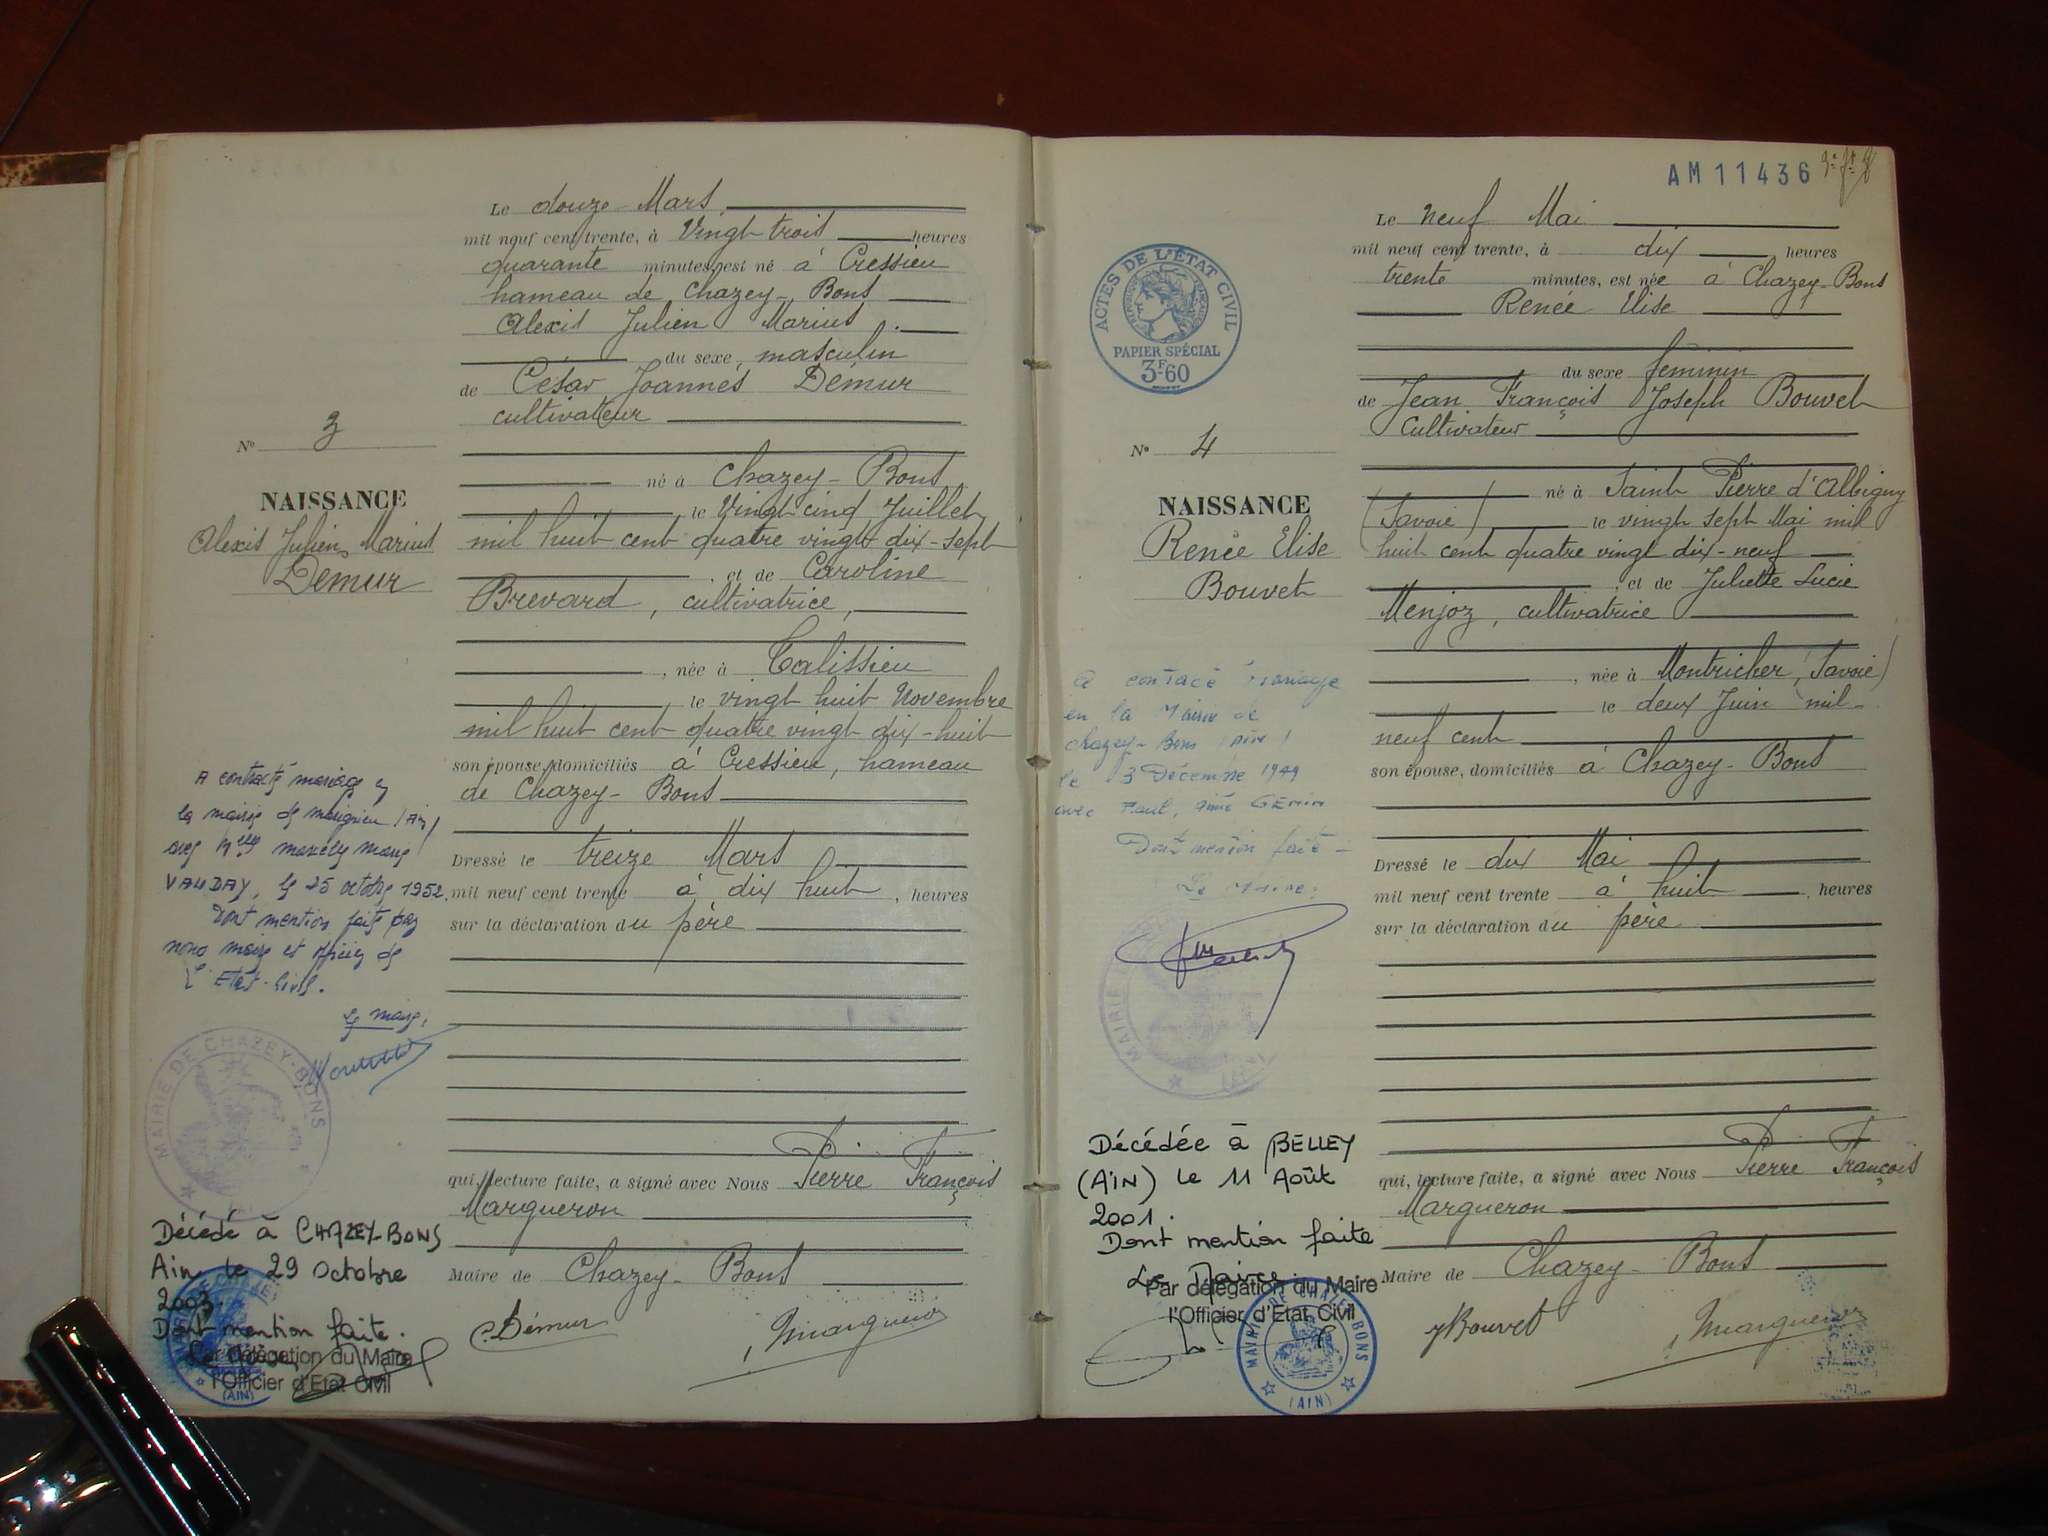 Le douze Mars
mil neuf cent trente, à Vingt trois heures
quarante minutes, est né à Cressieu
hameau de Chazey-Bons
Alexis Julien Marius
du sexe masculin
de César Joannès Démur
cultivateur
N° 3
né à Chazey-Bons
NAISSANCE
le Vingt cinq Juillet
Alexis Julien Marius
mil huit cent quatre vingt dix-sept
Démur
et de Caroline
Brevard, cultivatrice,
, née à Talissieu
le vingt huit Novembre
mil huit cent quatre vingt dix-huit
son épouse, domiciliés à Cressieu, hameau
de Chazey-Bons
A contracté mariage en
la mairie de (Ain)
avec Melle
VAUDAY, le 25 octobre 1952.
Dont mention faite par
nous maire et officier de
l'Etat-Civil.
Le maire,
Dressé le treize Mars
mil neuf cent trente à dix huit, heures
sur la déclaration du père
MAIRIE DE CHAZEY-BONS
qui, lecture faite, a signé avec Nous Pierre François
Margueron
Maire de Chazey-Bons
Décédé à CHAZEY-BONS
Ain le 29 Octobre
2003.
Dont mention faite.
Le Maire
Par délégation du Maire
l'Officier d'Etat Civil
(AIN)
C. Démur
Margueron
AM11436
Le neuf Mai
mil neuf cent trente, à dix heures
trente minutes, est née à Chazey-Bons
Renée Elise
ACTES DE L'ÉTAT CIVIL
PAPIER SPÉCIAL
3F60
du sexe féminin
de Jean François Joseph Bouvet
Cultivateur
N° 4
né à Saint Pierre d'Albigny
NAISSANCE
(Savoie) le vingt sept Mai mil
Renée Elise
huit cent quatre vingt dix-neuf
Bouvet
et de Juliette Lucie
Menjoz, cultivatrice
, née à Montricher (Savoie)
le deux Juin mil
neuf cent
son épouse, domiciliés à Chazey-Bons
A contracté mariage
en la Mairie de
Chazey-Bons (Ain)
le 3 Décembre 1949
avec Paul, Aimé GENIN
Dont mention faite
Le Maire:
Dressé le dix Mai
mil neuf cent trente à huit, heures
sur la déclaration du père
MAIRIE
qui, lecture faite, a signé avec Nous Pierre François
Margueron
Maire de Chazey-Bons
Décédée à BELLEY
(AIN) le 11 Août
2001.
Dont mention faite
Le Maire
Par délégation du Maire
l'Officier d'Etat Civil
MAIRIE DE CHAZEY BONS
(AIN)
J Bouvet
Margueron